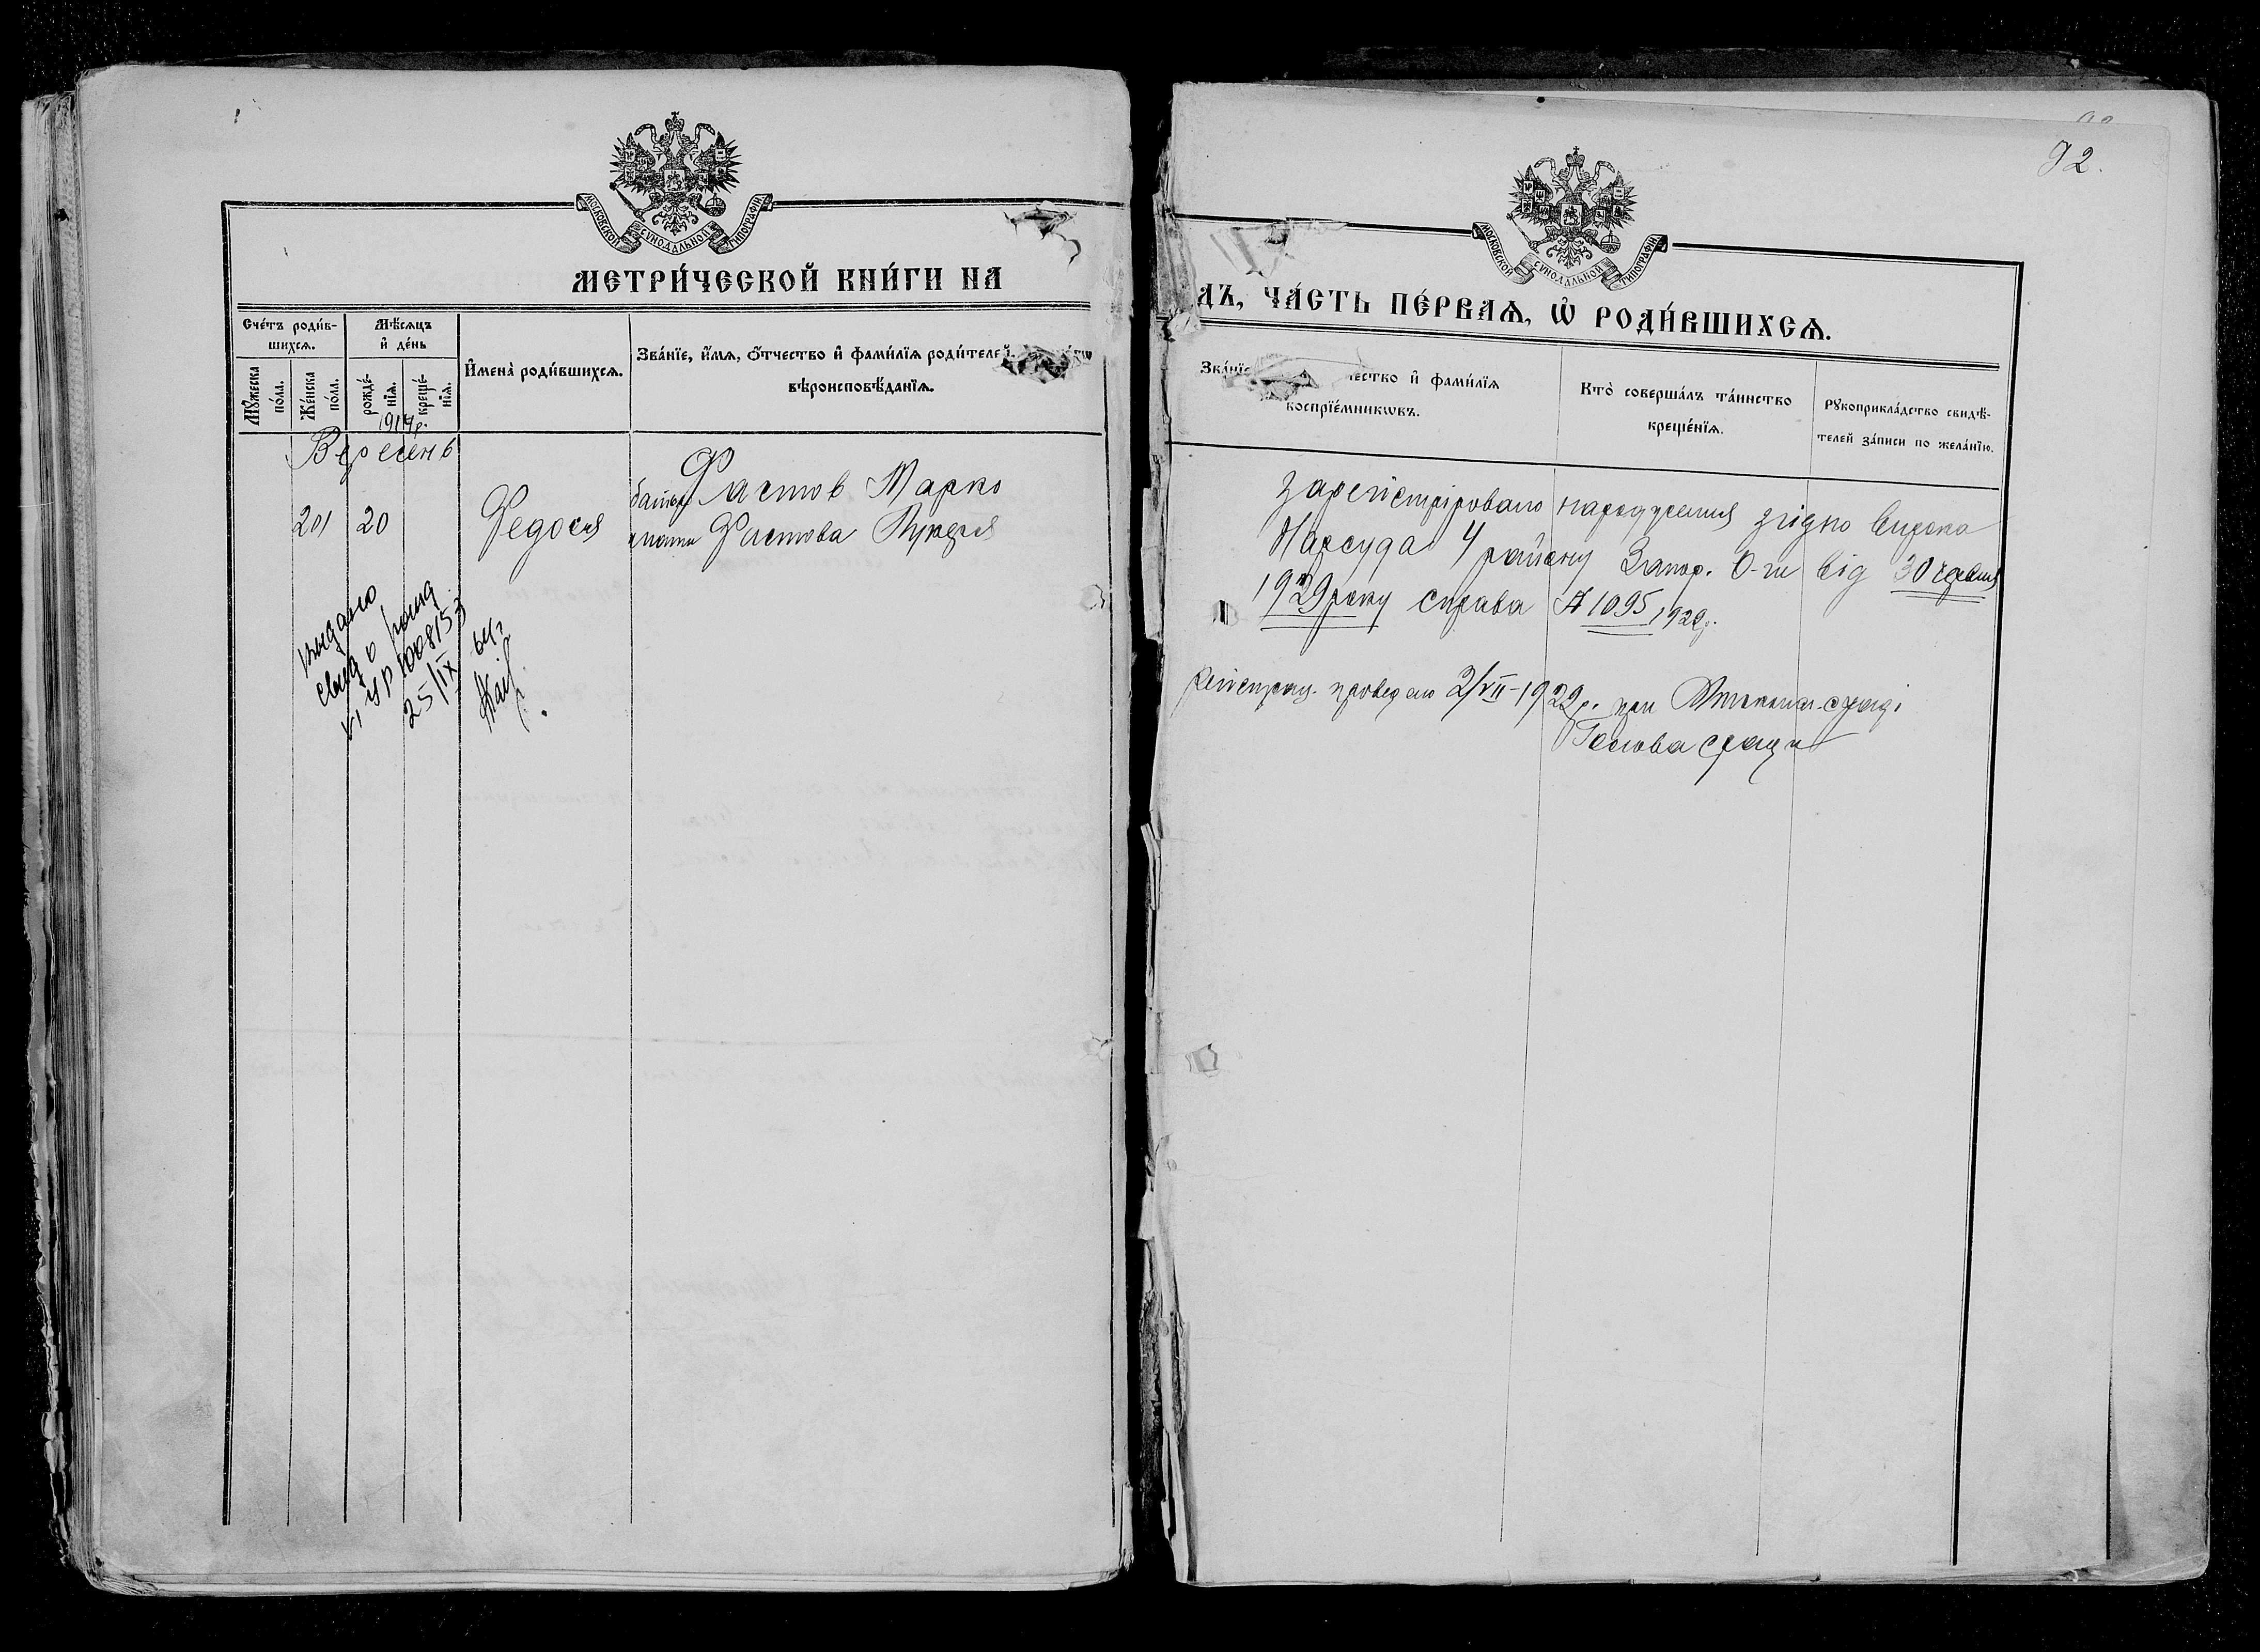 92.
МОСКОВСКОЙ СѴНОДАЛЬНОЙ ТИПОГРАФІИ.
МЕТРИ́ЧЕСКОЙ КНИ́ГИ НА
Сче́тъ роди́в-
шихсѧ.
Мѣ́сѧцъ
и҆ де́нь
Мꙋ́жеска
по́ла.
Же́нска
по́ла.
рожде́-
нїѧ.
креще́-
нїѧ.
И҆мена̀ роди́вшихсѧ.
Зва́нїе, и҆́мѧ, ѻ҆́тчество и҆ фами́лїѧ роди́телей,
вѣроисповѣ́данїѧ.
1914 р.
Вересень
201 20 Федосія
батько Фастов Марко
мати Фастова
выдано
свид о рожд
УР 1008153
25/IX 64г
МОСКОВСКОЙ СѴНОДАЛЬНОЙ ТИПОГРАФІИ.
ДЪ, ЧА́СТЬ ПЕ́РВАѦ, Ѡ҆ РОДИ́ВШИХСѦ.
Зва́нїе чество и҆ фами́лїѧ
воспрїе́мникѡвъ.
Кто̀ соверша́лъ та́инство
креще́нїѧ.
Рꙋкоприкла́дство свидѣ́-
телей за́писи по жела́нїю.
Зареєстріровано народження згідно вирока
Нарсуда 4 району Запор. О-ги від 30 червня
1929 року справа № 1095 1929р.
Реєстрац. проведено 2/VII-1929р. при сраді
Голова сради